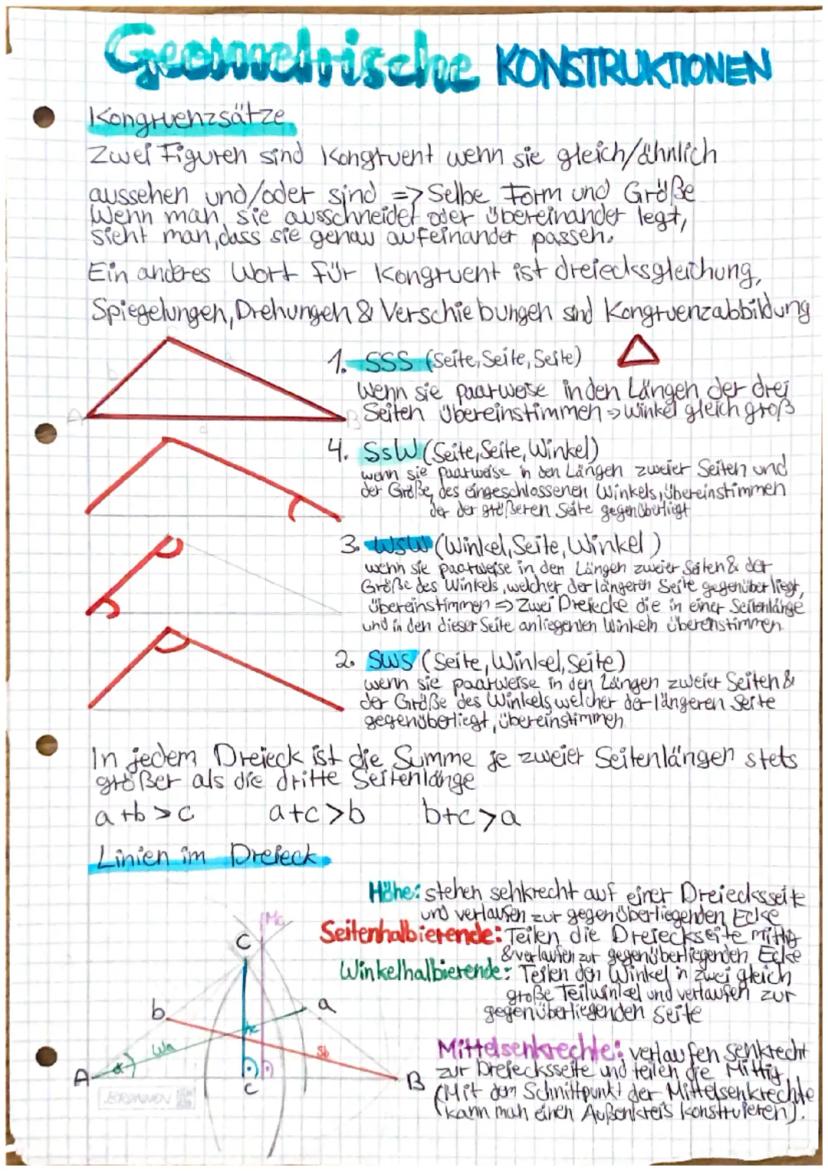 Geometrische KONSTRUKTIONEN
Kongruenzsätze
Zwei Figuren sind Kongruent wenn sie gleich/ähnlich
aussehen und/oder sind => Selbe Form und Größe
Wenn man sie ausschneidet oder übereinander legt,
sieht man, dass sie genau aufeinander passen.
Ein anderes Wort für Kongruent ist dreiecksgleichung,
Spiegelungen, Drehungen & Verschiebungen sind Kongruenzabbildung
1. SSS (Seite, Seite, Seite)
Wenn sie paarweise in den Längen der drei
Seiten übereinstimmen => Winkel gleich groß
A
B
4. SsW (Seite, Seite, Winkel)
wenn sie paarweise in den Längen zweier Seiten und
der Größe des eingeschlossenen Winkels, übereinstimmen
der der größeren Seite gegenüberliegt
3. WSW (Winkel, Seite, Winkel)
wenn sie paarweise in den Längen zweier Seiten & der
Größe des Winkels, welcher der längeren Seite gegenüber liegt,
übereinstimmen => Zwei Dreiecke die in einer Seitenlänge
und in den dieser Seite anliegenten Winkeln übereinstimmen
2. SWS (Seite, Winkel, Seite)
wenn sie paarweise in den Längen zweier Seiten &
der Größe des Winkels welcher der längeren Seite
gegenüberliegt, übereinstimmen
In jedem Dreieck ist die Summe je zweier Seitenlängen stets
größer als die dritte Seitenlänge
a+b>c a+c>b b+c>a
Linien im Dreieck
Höhe: stehen sehkrecht auf einer Dreiecksseite
und verlaufen zur gegenüberliegenden Ecke
Seitenhalbierende: Teilen die Dreieckseite mittig
& verlaufen zur gegenüberliegenden Ecke
Winkelhalbierende: Teilen den Winkel in zwei gleich
große Teilwinkel und verlaufen zur
gegenüberliegenden Seite
Mittelsenkrechte: verlaufen senkrecht
zur Dreiecksseite und teilen die Mittig
(Mit dem Schnittpunkt der Mittelsenkrechte
kann man einen Außenkreis Konstruieren).
Mc
C
b
a
hc
Wa
Sb
α
A
B
c